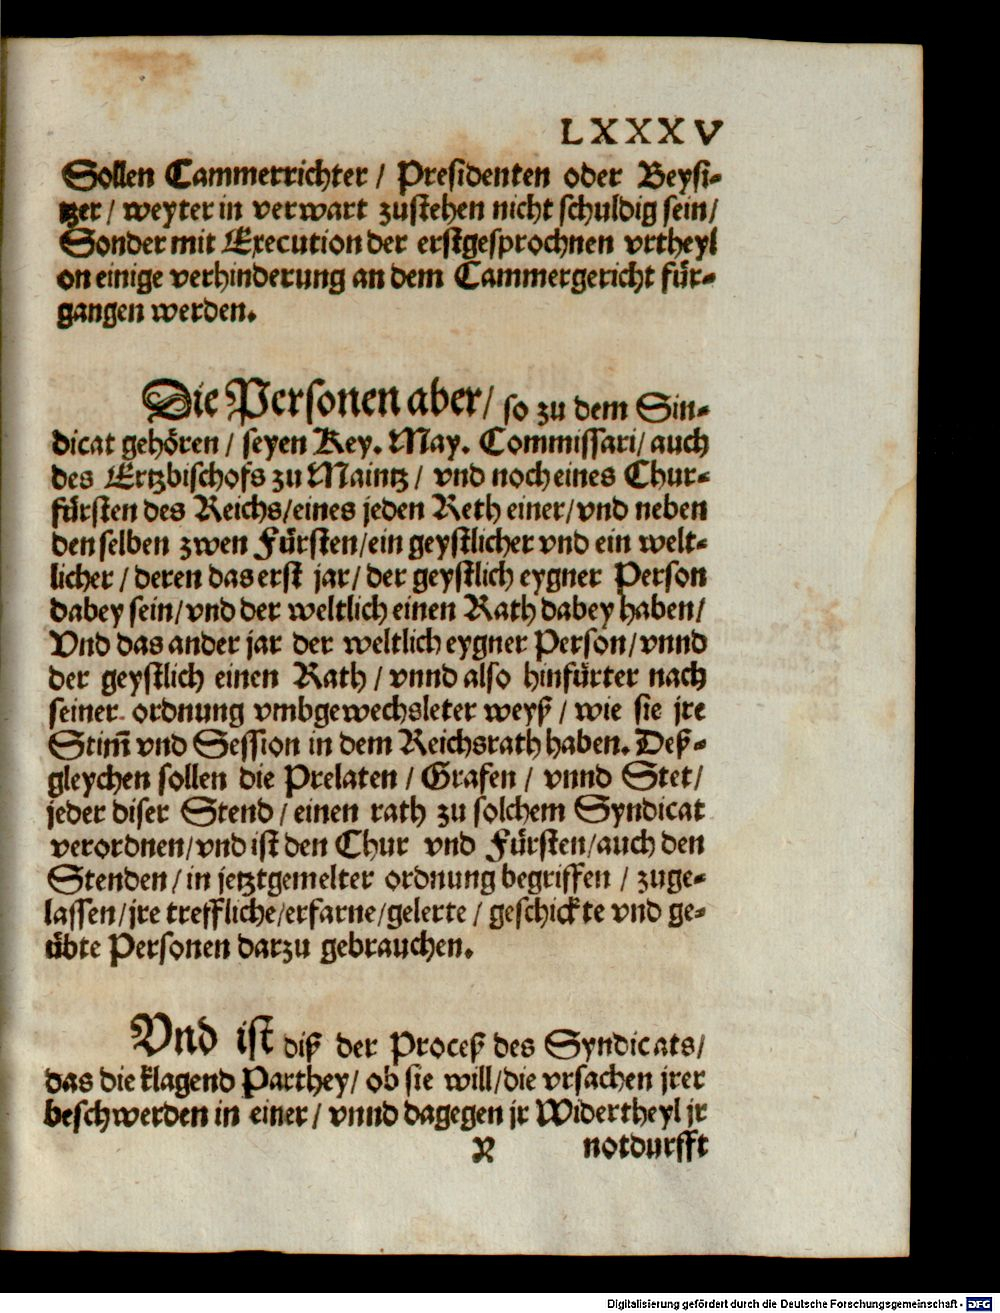 LXXXV
Sollen Cammerrichter / Presidenten oder Beysi-
tzer / weyter in verwart zustehen nicht schuldig sein /
Sonder mit Execution der erstgesprochnen vrtheyl
on einige verhinderung an dem Cammergericht für-
gangen werden.
Die Personen aber / so zu dem Sin-
dicat gehören / seyen Key. May. Commissari / auch
des Ertzbischofs zu Maintz / vnd noch eines Chur-
fürsten des Reichs / eines jeden Reth einer / vnd neben
den selben zwen Fürsten / ein geystlicher vnd ein welt-
licher / deren das erst jar / der geystlich eygner Person
dabey sein / vnd der weltlich einen Rath dabey haben /
Vnd das ander jar der weltlich eygner Person / vnnd
der geystlich einen Rath / vnnd also hinfürter nach
seiner ordnung vmbgewechsleter weyß / wie sie jre
Stim̄ vnd Session in dem Reichsrath haben. Deß-
gleychen sollen die Prelaten / Grafen / vnnd Stet /
jeder diser Stend / einen rath zu solchem Syndicat
verordnen / vnd ist den Chur vnd Fürsten / auch den
Stenden / in jetztgemelter ordnung begriffen / zuge-
lassen / jre treffliche / erfarne / gelerte / geschickte vnd ge-
übte Personen darzu gebrauchen.
Vnd ist diß der Proceß des Syndicats /
das die klagend Parthey / ob sie will / die vrsachen jrer
beschwerden in einer / vnnd dagegen jr Widertheyl jr
X notdurfft
Digitalisierung gefördert durch die Deutsche Forschungsgemeinschaft - DFG